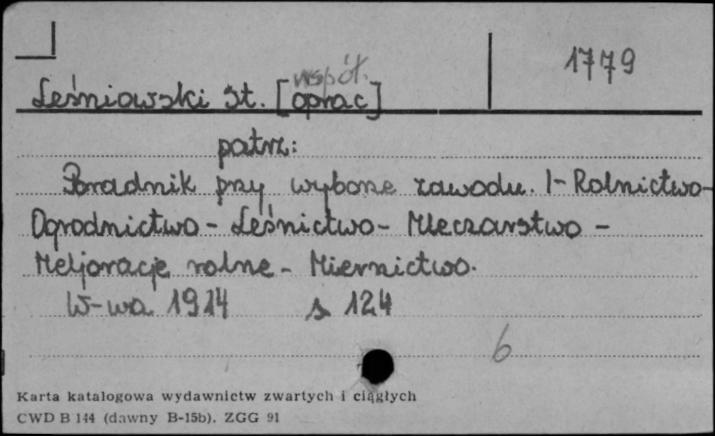 1779
współ.
Leśniowski St. [oprac]
patrz:
Poradnik przy wyborze zawodu. I - Rolnictwo-
Ogrodnictwo - Leśnictwo - Mleczarstwo -
Meljoracje rolne - Miernictwo.
W-wa 1914 s 124
6
Karta katalogowa wydawnictw zwartych i ciągłych
CWD B 144 (dawny B-15b). ZGG 91